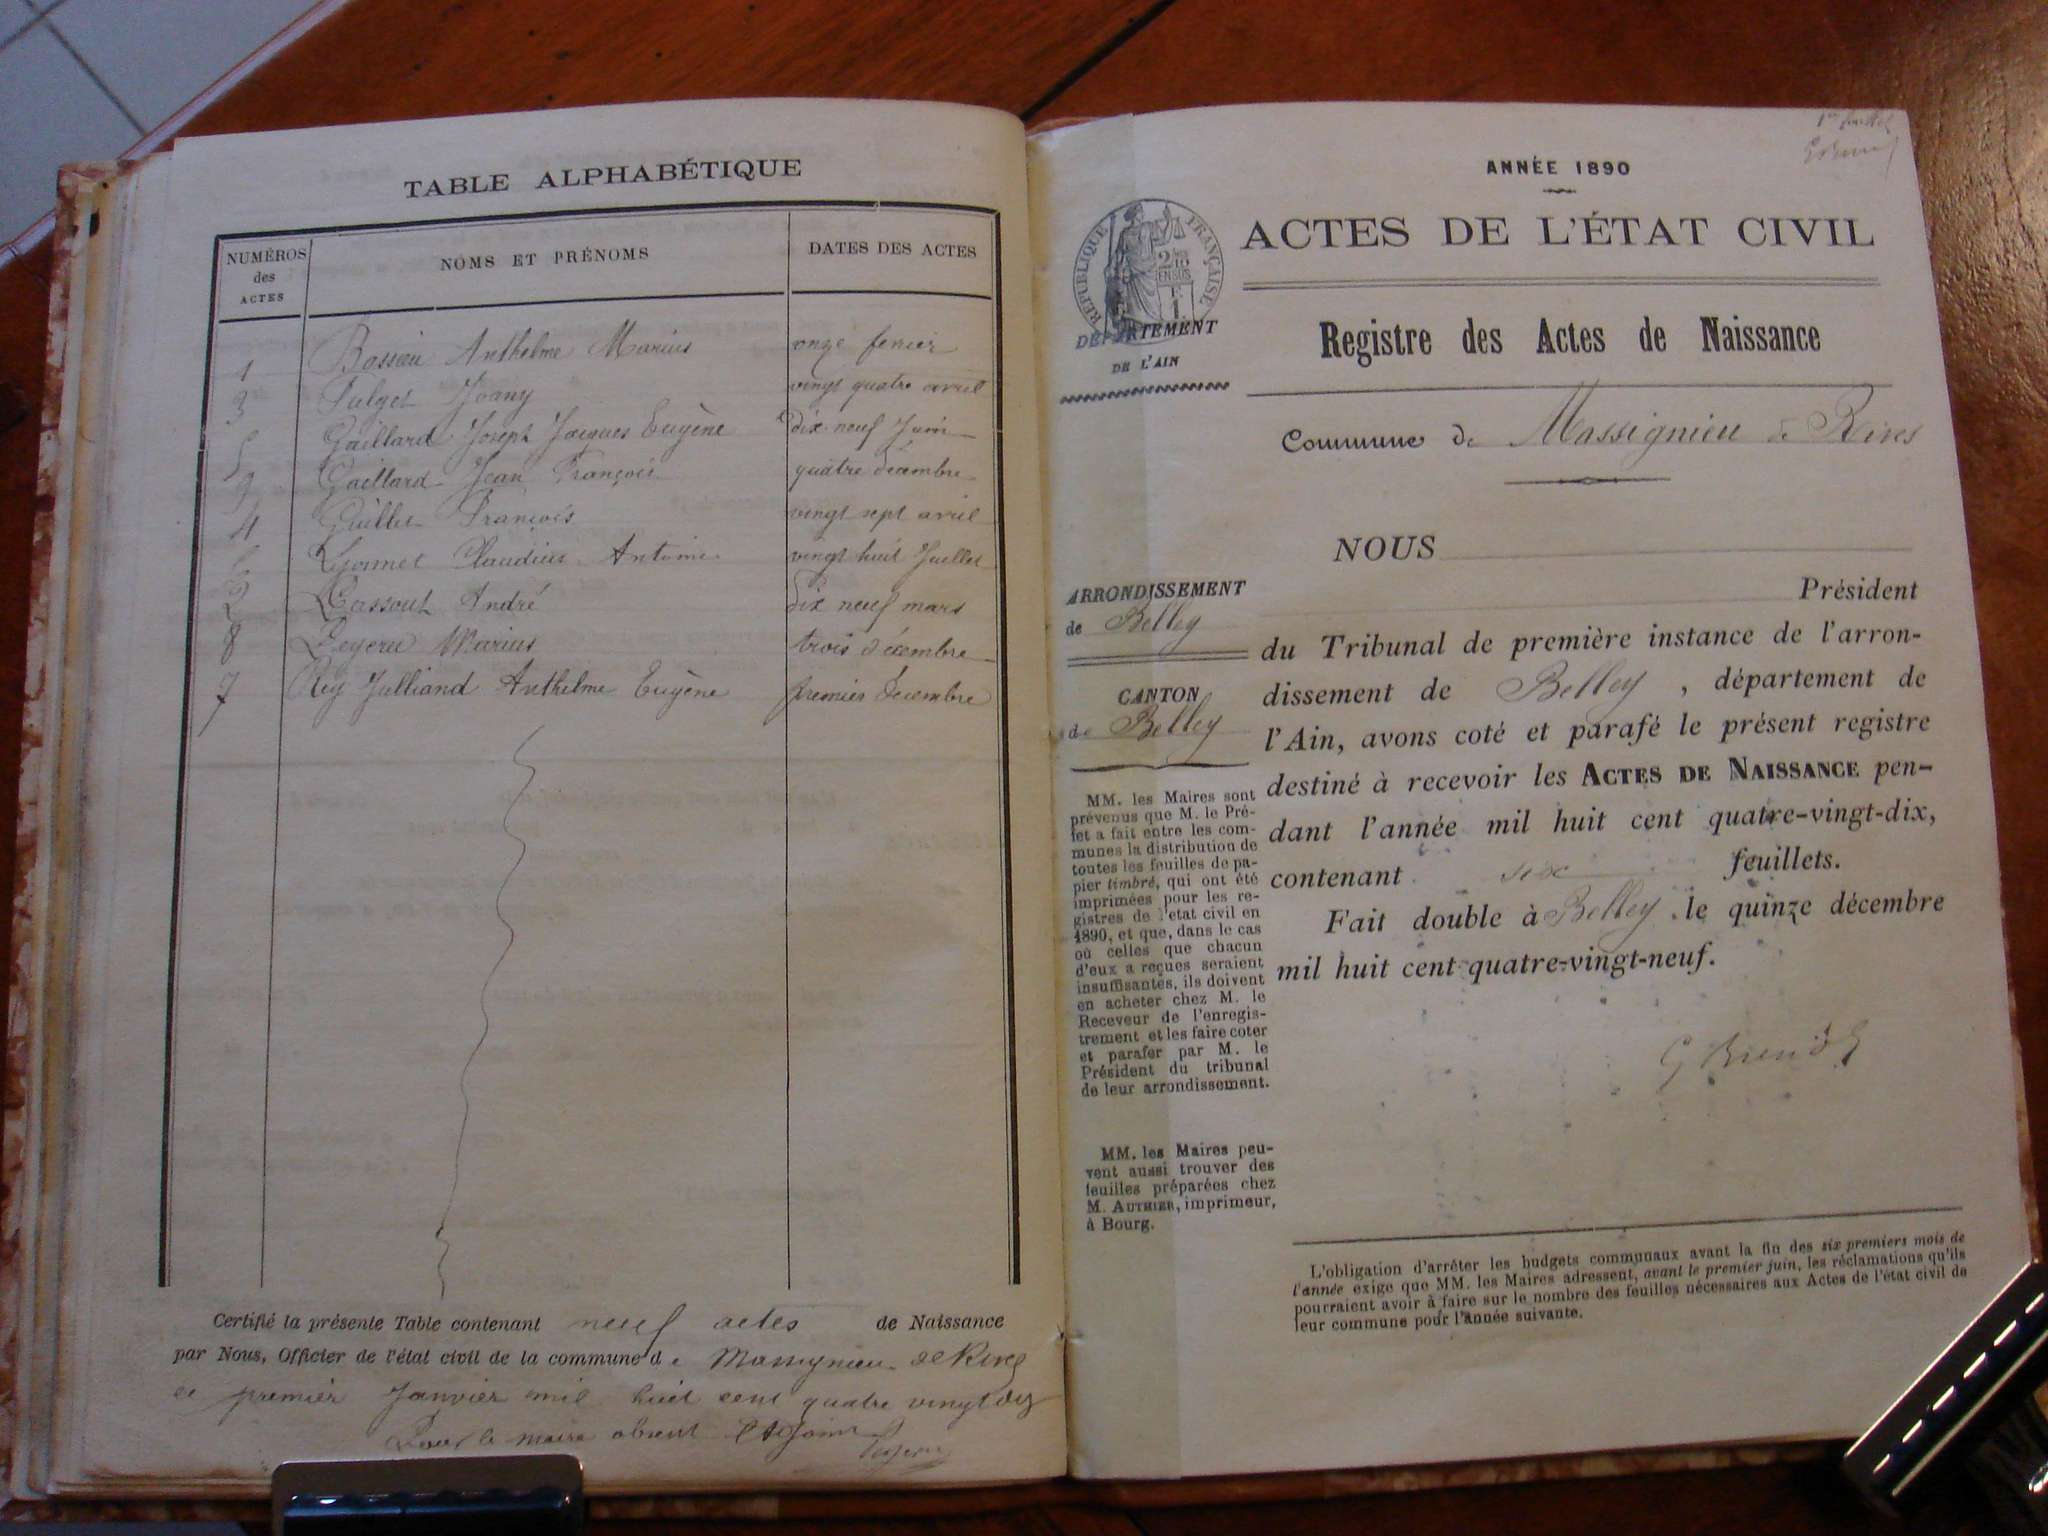 TABLE ALPHABÉTIQUE
NUMÉROS des ACTES
NOMS ET PRÉNOMS
DATES DES ACTES
1 Anthelme Marius onze fevrier
3 Joany vingt quatre avril
5 Gaillard Joseph Jacques Eugène dix neuf Juin
9 Gaillard Jean François quatre décembre
4 François vingt sept avril
6 Claudius Antoine vingt huit Juillet
2 André dix neuf mars
8 Marius trois décembre
7 Rey Julliand Anthelme Eugène premier Décembre
Certifié la présente Table contenant neuf actes de Naissance
par Nous, Officier de l'état civil de la commune de Massignieu de Rives
ce premier Janvier mil huit cent quatre vingt dix
Pour le maire absent l'Adjoint
ANNÉE 1890
RÉPUBLIQUE FRANÇAISE
DÉPARTEMENT
DE L'AIN
ACTES DE L'ÉTAT CIVIL
Registre des Actes de Naissance
Commune de Massignieu de Rives
ARRONDISSEMENT
de Belley
CANTON
de Belley
MM. les Maires sont
prévenus que M. le Pré-
fet a fait entre les com-
munes la distribution de
toutes les feuilles de pa-
pier timbré, qui ont été
imprimées pour les re-
gistres de l'etat civil en
1890, et que, dans le cas
où celles que chacun
d'eux a reçues seraient
insuffisantes, ils doivent
en acheter chez M. le
Receveur de l'enregis-
trement et les faire coter
et parafer par M. le
Président du tribunal
de leur arrondissement.
MM. les Maires peu-
vent aussi trouver des
feuilles préparées chez
M. AUTHIER, imprimeur,
à Bourg.
NOUS
Président
du Tribunal de première instance de l'arron-
dissement de Belley, département de
l'Ain, avons coté et parafé le présent registre
destiné à recevoir les ACTES DE NAISSANCE pen-
dant l'année mil huit cent quatre-vingt-dix,
contenant six feuillets.
Fait double à Belley, le quinze décembre
mil huit cent quatre-vingt-neuf.
L'obligation d'arrêter les budgets communaux avant la fin des six premiers mois de
l'année exige que MM. les Maires adressent, avant le premier juin, les réclamations qu'ils
pourraient avoir à faire sur le nombre des feuilles nécessaires aux Actes de l'état civil de
leur commune pour l'année suivante.